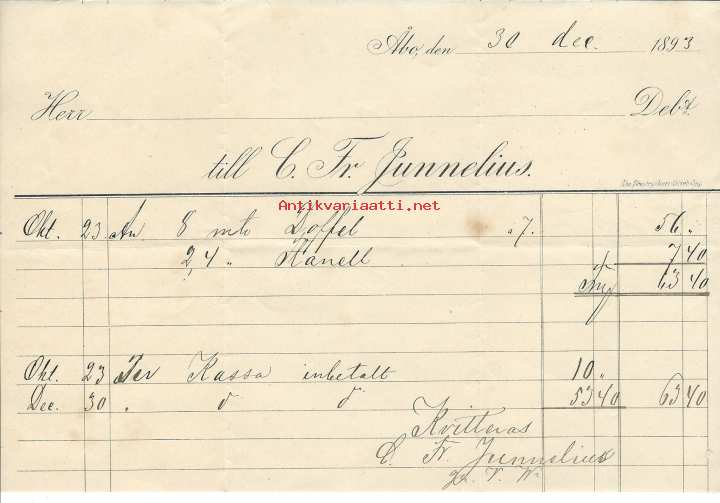 Åbo, den 30 dec. 1893
Herr Debt
till C. Fr. Junnelius.
Antikvariaatti.net
Okt. 23 An 8 mtr Doffel " 7. 56 "
2,4 " Flanell 7 40
Fmf 63 40
Okt. 23 Per Kassa inbetalt 10 "
Dec. 30 " d° d° 53 40 63 40
Kvitteras
C. Fr. Junnelius